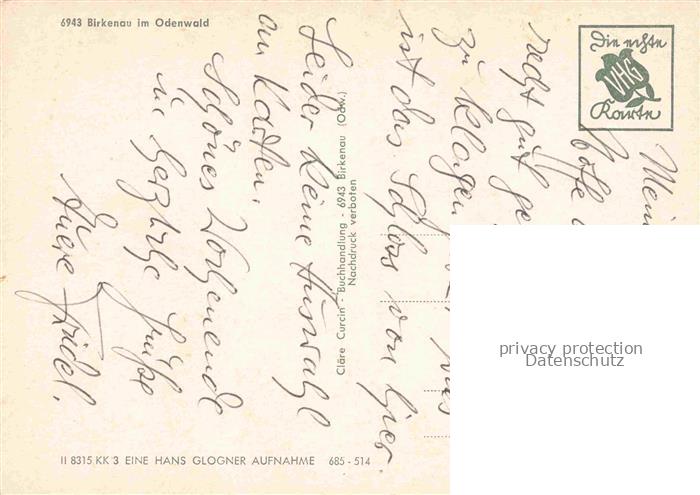 6943 Birkenau im Odenwald
Die echte
VHG
Karte
Mein
recht gut
zu klagen
ist das Schloss von hier
Leider keine Auswahl
an Karten.
Schönes Wochenende
u. herzliche Grüße
Eure Friedel.
Cläre Curcin - Buchhandlung - 6943 Birkenau (Odw.)
Nachdruck verboten
II 8315 KK 3 EINE HANS GLOGNER AUFNAHME 685 - 514
privacy protection
Datenschutz